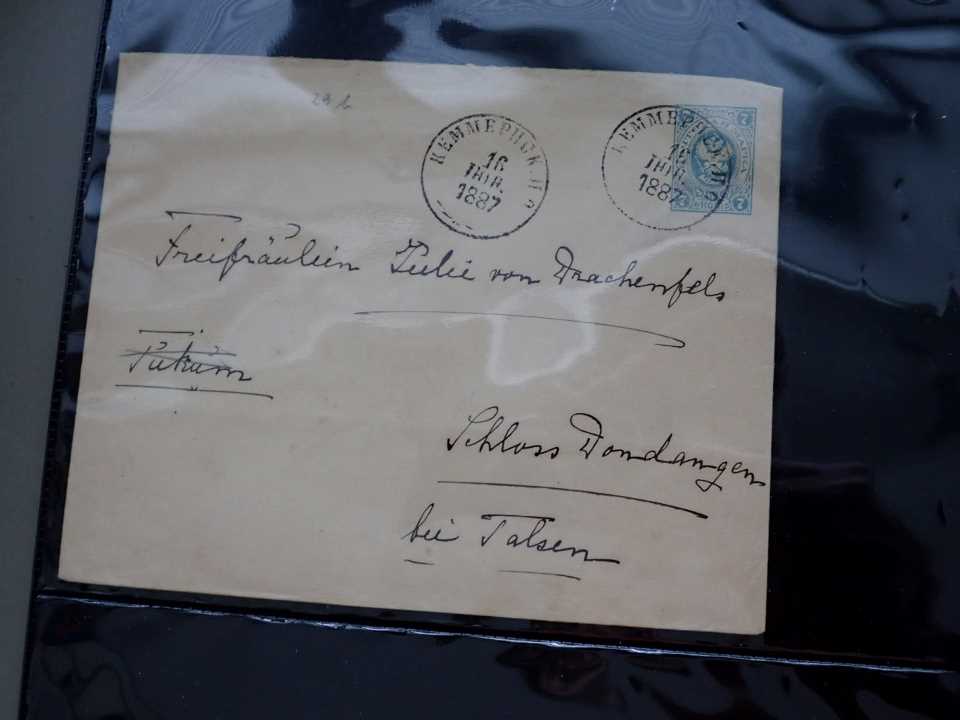 29 b
КЕММЕРНСК. П
16
ІЮН.
1887
КЕММЕРНСК. П
16
ІЮН.
1887
7
7
7
Freifräulein Julie von Drachenfels
Tukum
Schloss Dondangen
bei Talsen